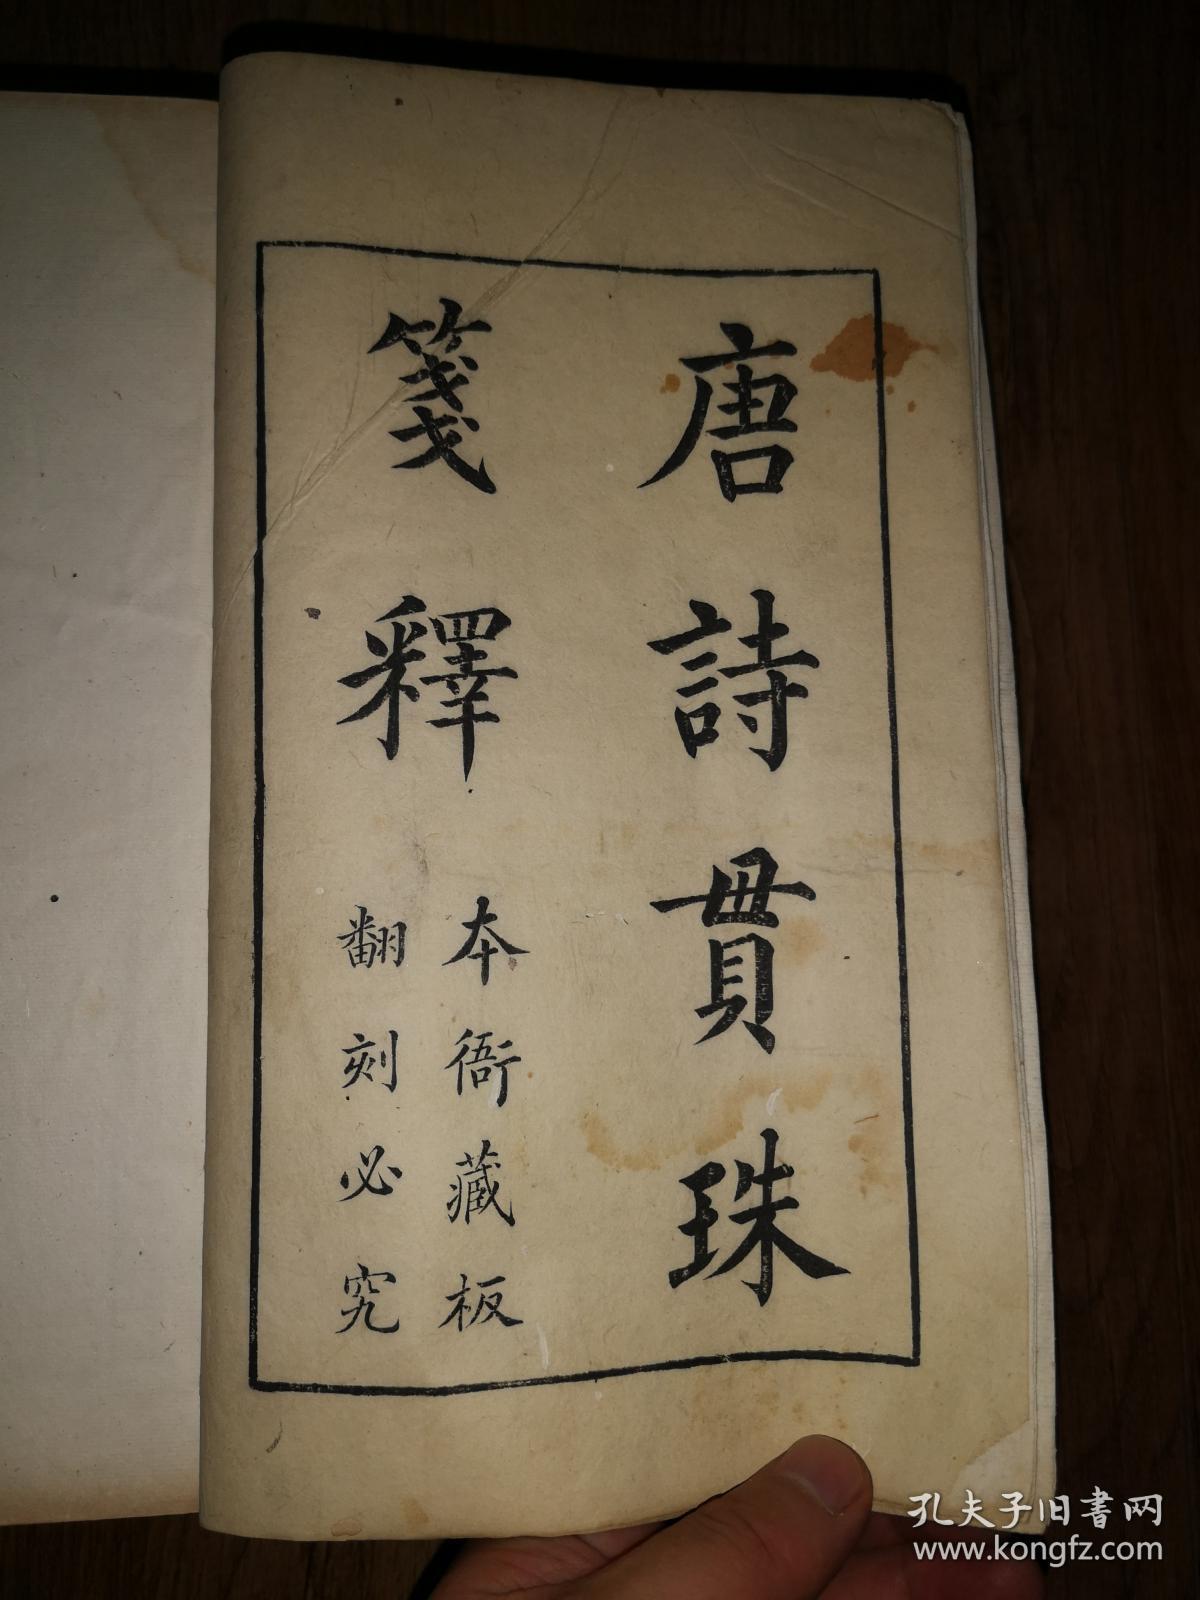 唐詩貫珠
箋釋
本衙藏板
翻刻必究
孔夫子旧書网
www.kongfz.com